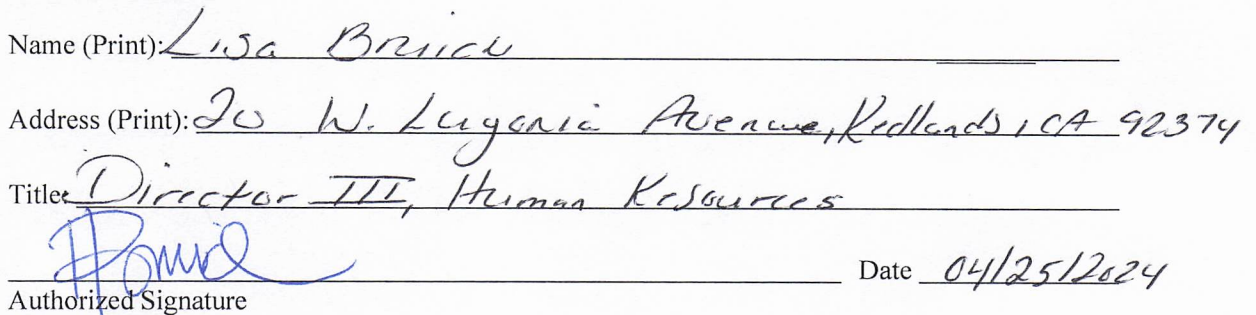 Name (Print): Lisa Bruich
Address (Print): 20 W. Lugonia Avenue, Redlands, CA 92374
Title: Director III, Human Resources
Date 04/25/2024
Authorized Signature